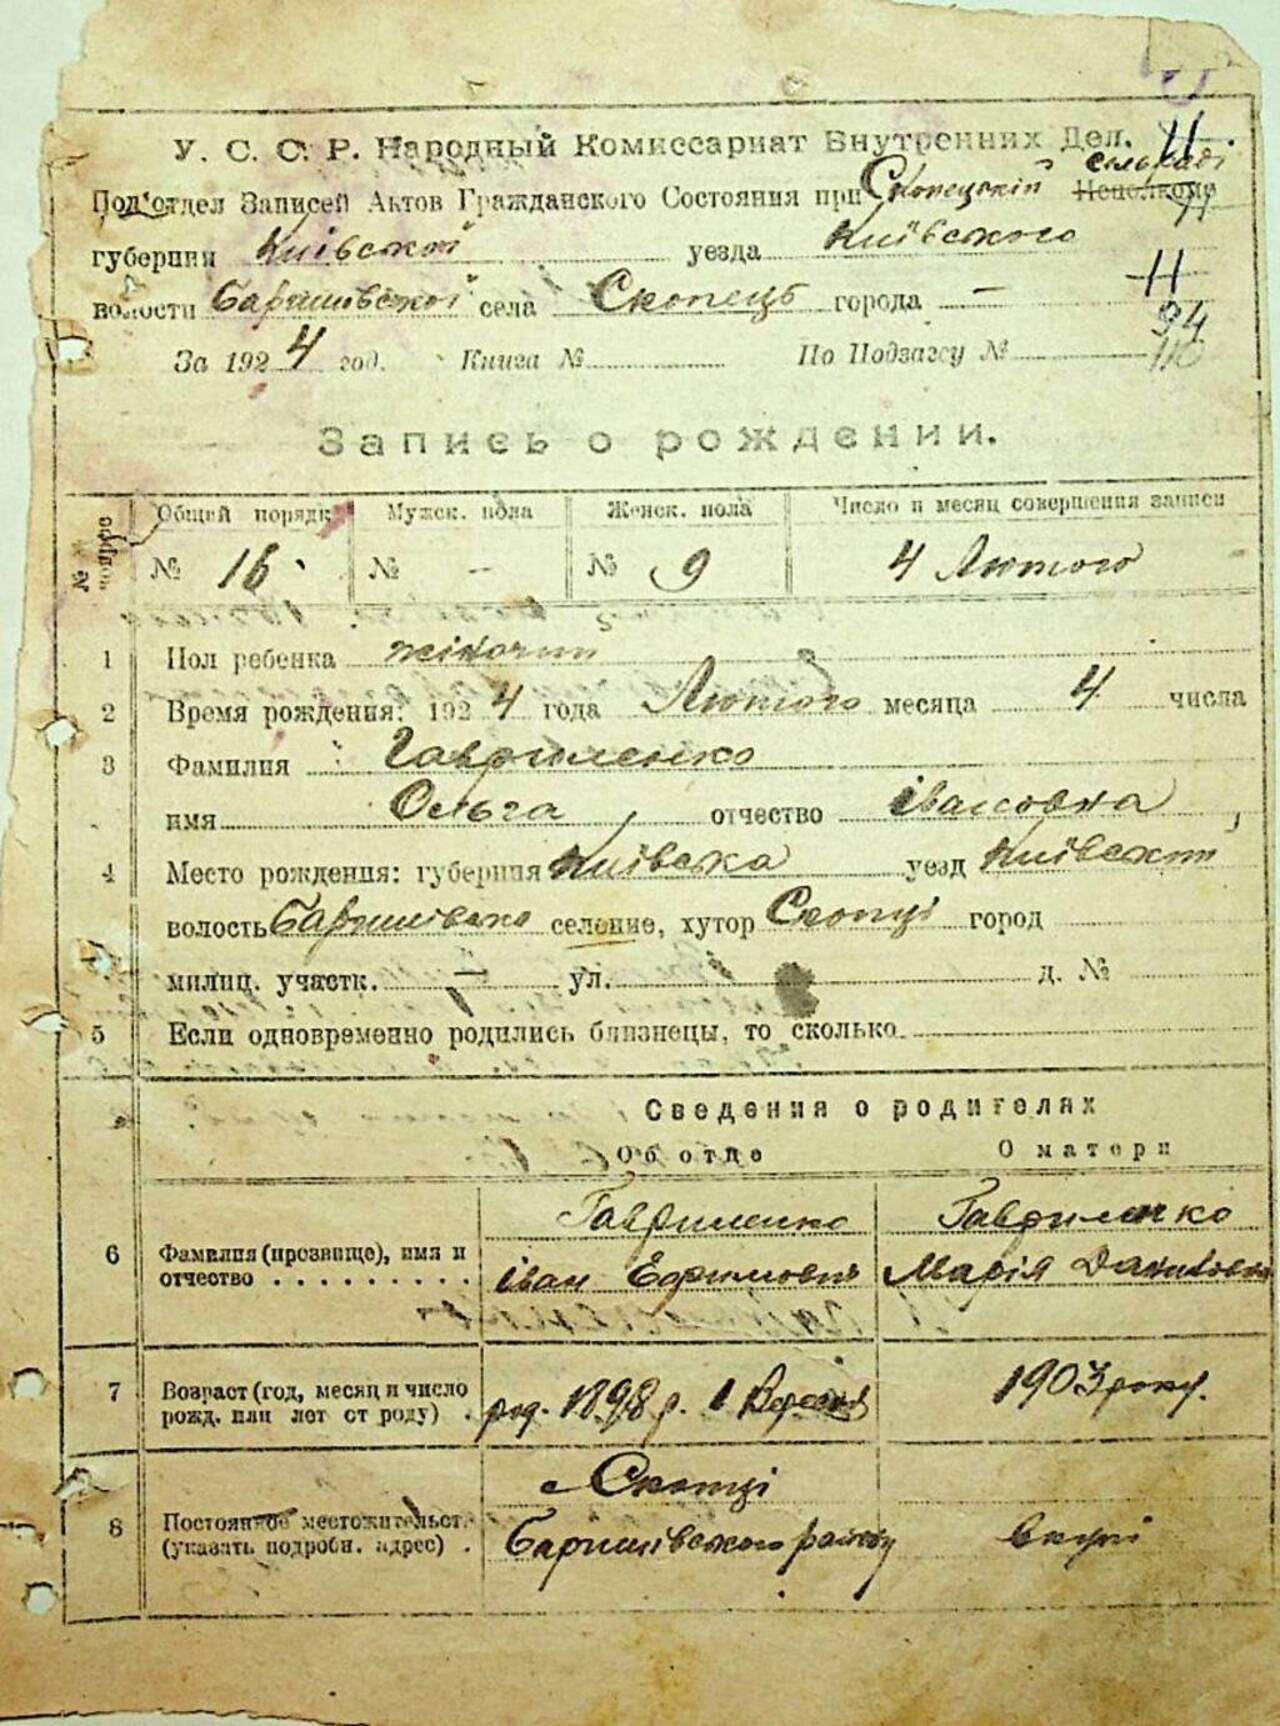 У. С. С. Р. Народный Комиссариат Внутренних Дел. 11
Под'отдел Записей Актов Гражданского Состояния при Скопецкій сельраді Исполкому
губернии Київської уезда Київського
волости Баришівської села Скопець города — 11
94
За 1924 год. Книга № По Подзагсу № 110
Запись о рождении.
Общий порядк. Мужск. пола Женск. пола Число и месяц совершения записи
№ 16 № - № 9 4 Лютого
1 Пол ребенка жіночий
2 Время рождения: 1924 года Лютого месяца 4 числа
3 Фамилия Гавриленко
имя Ольга, отчество Івановна,
4 Место рождения: губерния Київська уезд Київский
волость Баришівська селение, хутор Скопці город
милиц. участк. — ул. д. №
5 Если одновременно родились близнецы, то сколько
Сведения о родителях
Об отце О матери
Гавриленко Гавриленко
6 Фамилия (прозвище), имя и отчество Іван Ефимович Марія Даниловна
7 Возраст (год, месяц и число рожд. или лет от роду) род. 1898 р. 1 Вересня 1903 року.
с Скопці
8 Постоянное местожительст. (указать подробн. адрес) Баришівського району вкупі